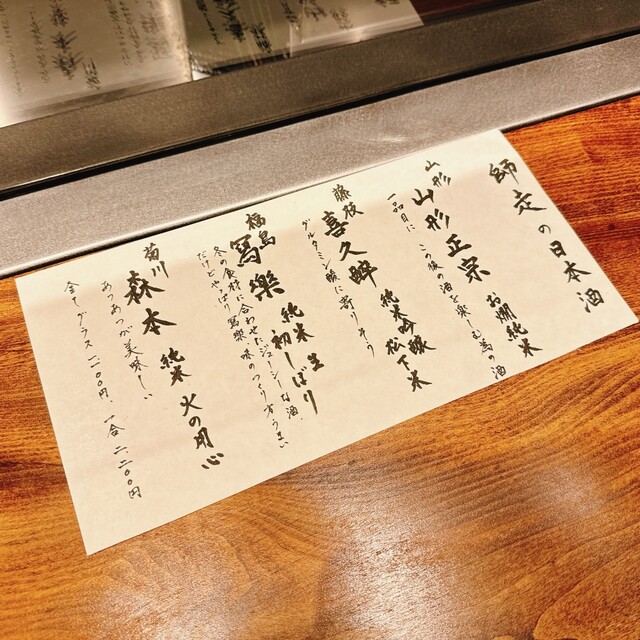 師走の日本酒
山形 山形正宗 お燗純米
一品目に、この後の酒を楽しむ為の酒
藤枝 喜久醉 純米吟醸 松下米
グルタミン酸に寄りそう
福島 寫樂 純米 生 初しぼり
冬の食材に合わせたジューシーな酒、
だけどやっぱり寫樂、味のつくり方うまい
菊川 森本 純米 火の用心
あつあつが美味しい
全てグラス一二〇〇円、一合 二二〇〇円